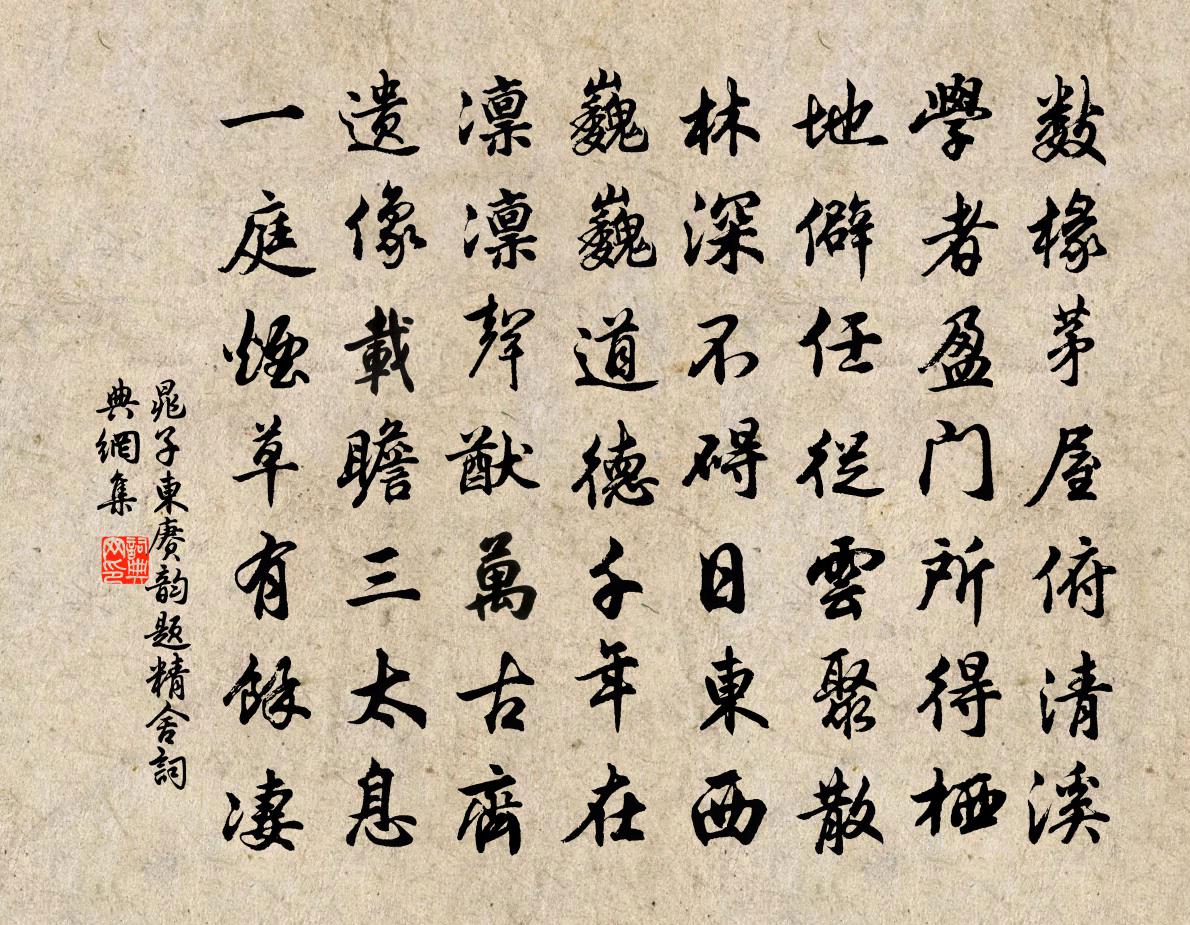 數椽茅屋俯清溪
學者盈門所得栖
地僻任從雲聚散
林深不碍日東西
巍巍道德千年在
凛凛聲猷萬古齊
遺像載瞻三太息
一庭煙草有餘凄
晁子東賡韵題精舍詞
典網集
詞典
网印